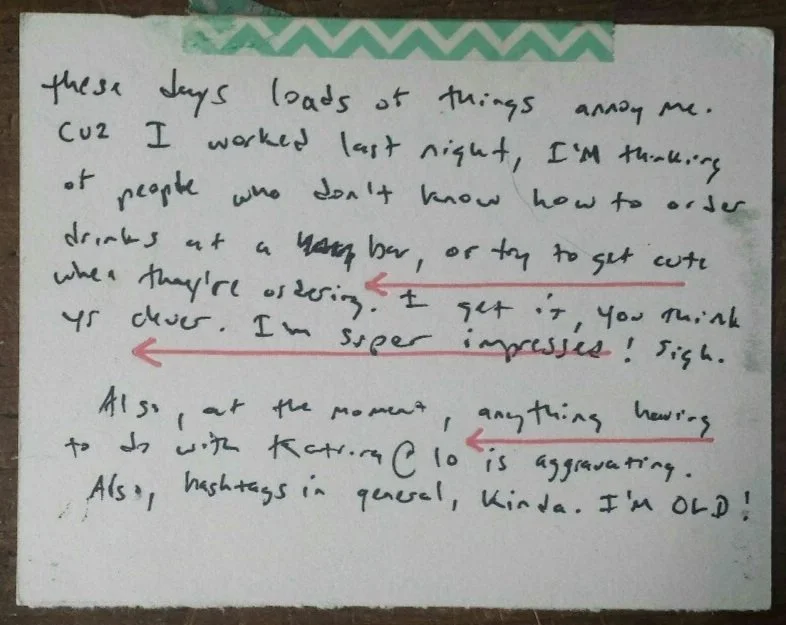 these days loads of things annoy me.
CUZ I worked last night, I'M thinking
of people who don't know how to order
drinks at a bar, or try to get cute
when they're ordering. I get it, you think
yr clever. I'm super impressed! Sigh.
Also, at the moment, anything having
to do with Katrina@10 is aggravating.
Also, hashtags in general, kinda. I'M OLD!